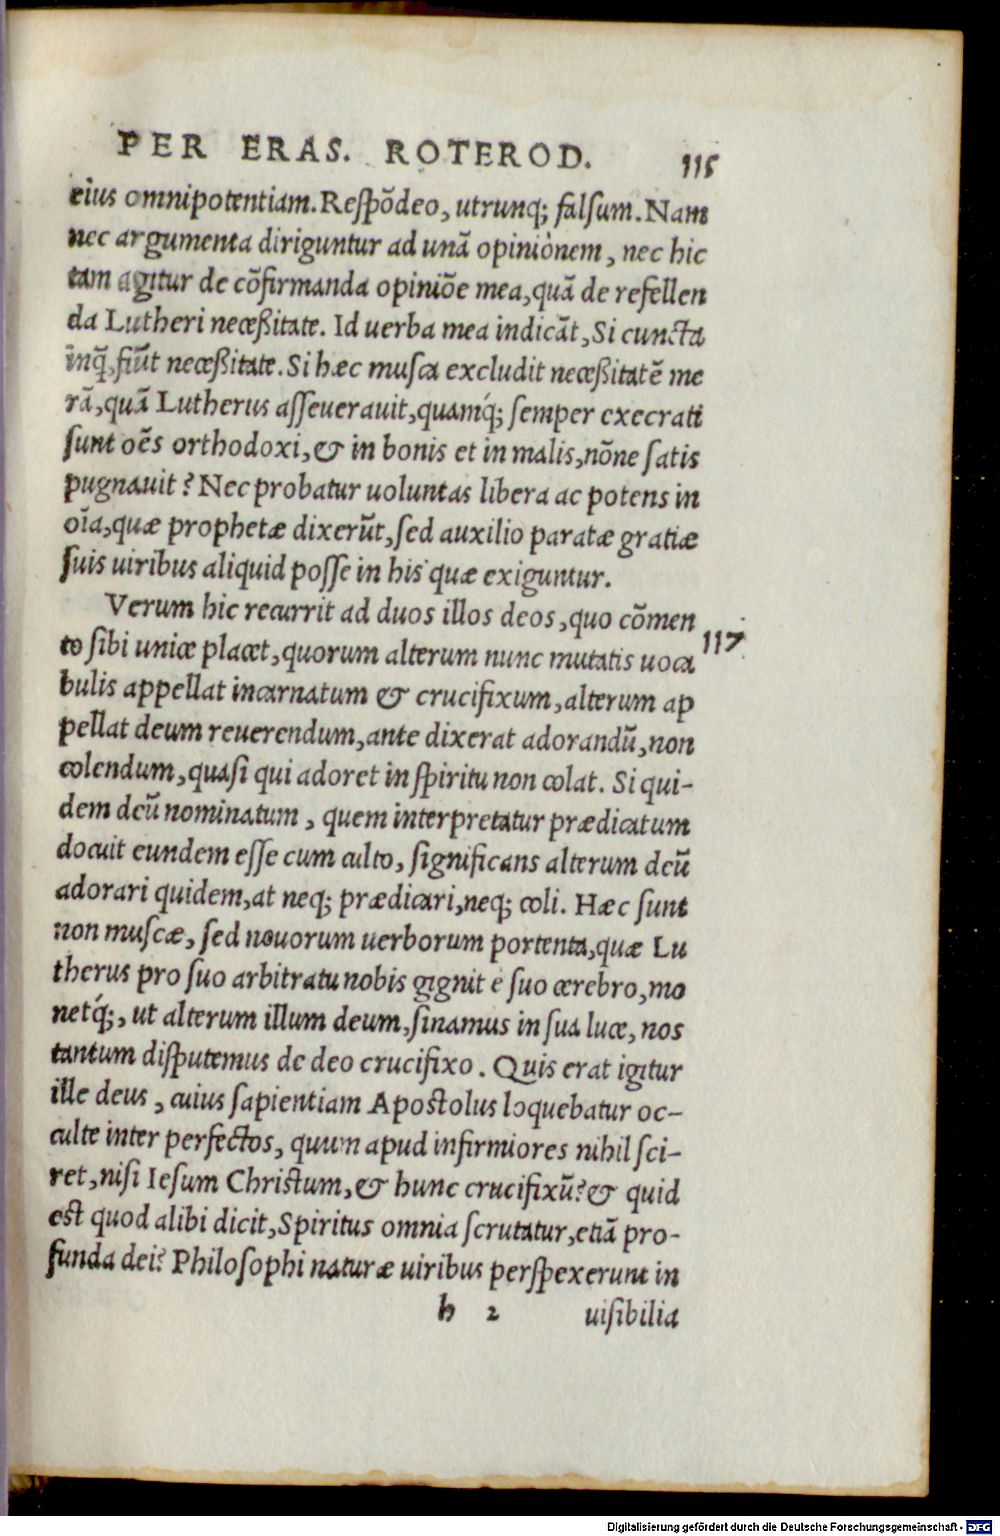 PER ERAS. ROTEROD. 115
eius omnipotentiam. Respõdeo, utrunq; falsum. Nam
nec argumenta diriguntur ad unã opinionem, nec hic
tam agitur de cõfirmanda opiniõe mea, quã de refellen
da Lutheri neceßitate. Id uerba mea indicãt, Si cuncta
inq̃, fiũt neceßitate. Si hæc musca excludit neceßitatẽ me
rã, quã Lutherus asseuerauit, quamq́; semper execrati
sunt oẽs orthodoxi, & in bonis et in malis, nõne satis
pugnauit? Nec probatur uoluntas libera ac potens in
oĩa, quæ prophetæ dixerũt, sed auxilio paratæ gratiæ
suis uiribus aliquid posse in his quæ exiguntur.
Verum hic recurrit ad duos illos deos, quo cõmen
to sibi unice placet, quorum alterum nunc mutatis uoca 117
bulis appellat incarnatum & crucifixum, alterum ap
pellat deum reuerendum, ante dixerat adorandũ, non
colendum, quasi qui adoret in spiritu non colat. Si qui-
dem deũ nominatum, quem interpretatur prædicatum
docuit eundem esse cum culto, significans alterum deũ
adorari quidem, at neq; prædicari, neq; coli. Hæc sunt
non muscæ, sed nouorum uerborum portenta, quæ Lu
therus pro suo arbitratu nobis gignit e suo cerebro, mo
netq́;, ut alterum illum deum, sinamus in sua luce, nos
tantum disputemus de deo crucifixo. Quis erat igitur
ille deus, cuius sapientiam Apostolus loquebatur oc-
culte inter perfectos, quum apud infirmiores nihil sci-
ret, nisi Iesum Christum, & hunc crucifixũ? & quid
est quod alibi dicit, Spiritus omnia scrutatur, etiã pro-
funda dei? Philosophi naturæ uiribus perspexerunt in
h 2 uisibilia
Digitalisierung gefördert durch die Deutsche Forschungsgemeinschaft - DFG